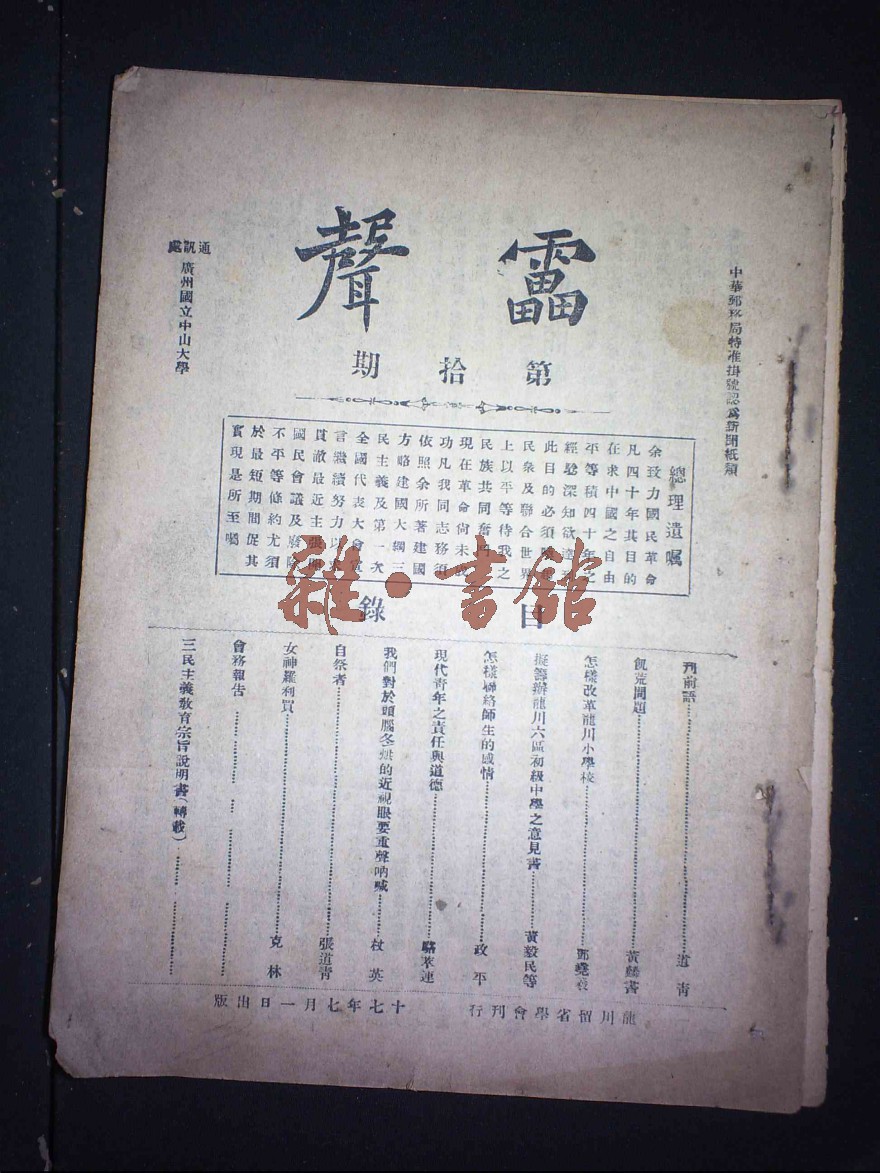 中華郵務局特准掛號認爲新聞紙類
雷聲
第拾期
通訊處 廣州國立中山大學
總理遺囑
余致力國民革命
凡四十年其目的
在求中國之自由
平等積四十年之
經驗深知欲達
此目的必須喚
民衆及聯合世界
上以平等待我之
民族共同奮鬥
現在革命尚未成
功凡我同志務須
依照余所著建國
方略建國大綱三
民主義及第一次
全國代表大會宣
言繼續努力以
貫澈最近主張
國民會議及廢除
不平等條約尤須
於最短期間促其
實現是所至囑
目錄
刊前語 道青
飢荒問題 黃麟書
怎樣改革龍川小學校 鄧
擬籌辦龍川六區初級中學之意見書 黃毅民等
怎樣聯絡師生的感情 政平
現代靑年之責任與道德 駱萃連
我們對於頭腦冬烘的近視眼要重聲吶喊 杖英
自祭者 張道青
女神羅利買 克林
會務報告
三民主義敎育宗旨說明書(轉載)
龍川留省學會刊行
十七年七月一日出版
雜·書館